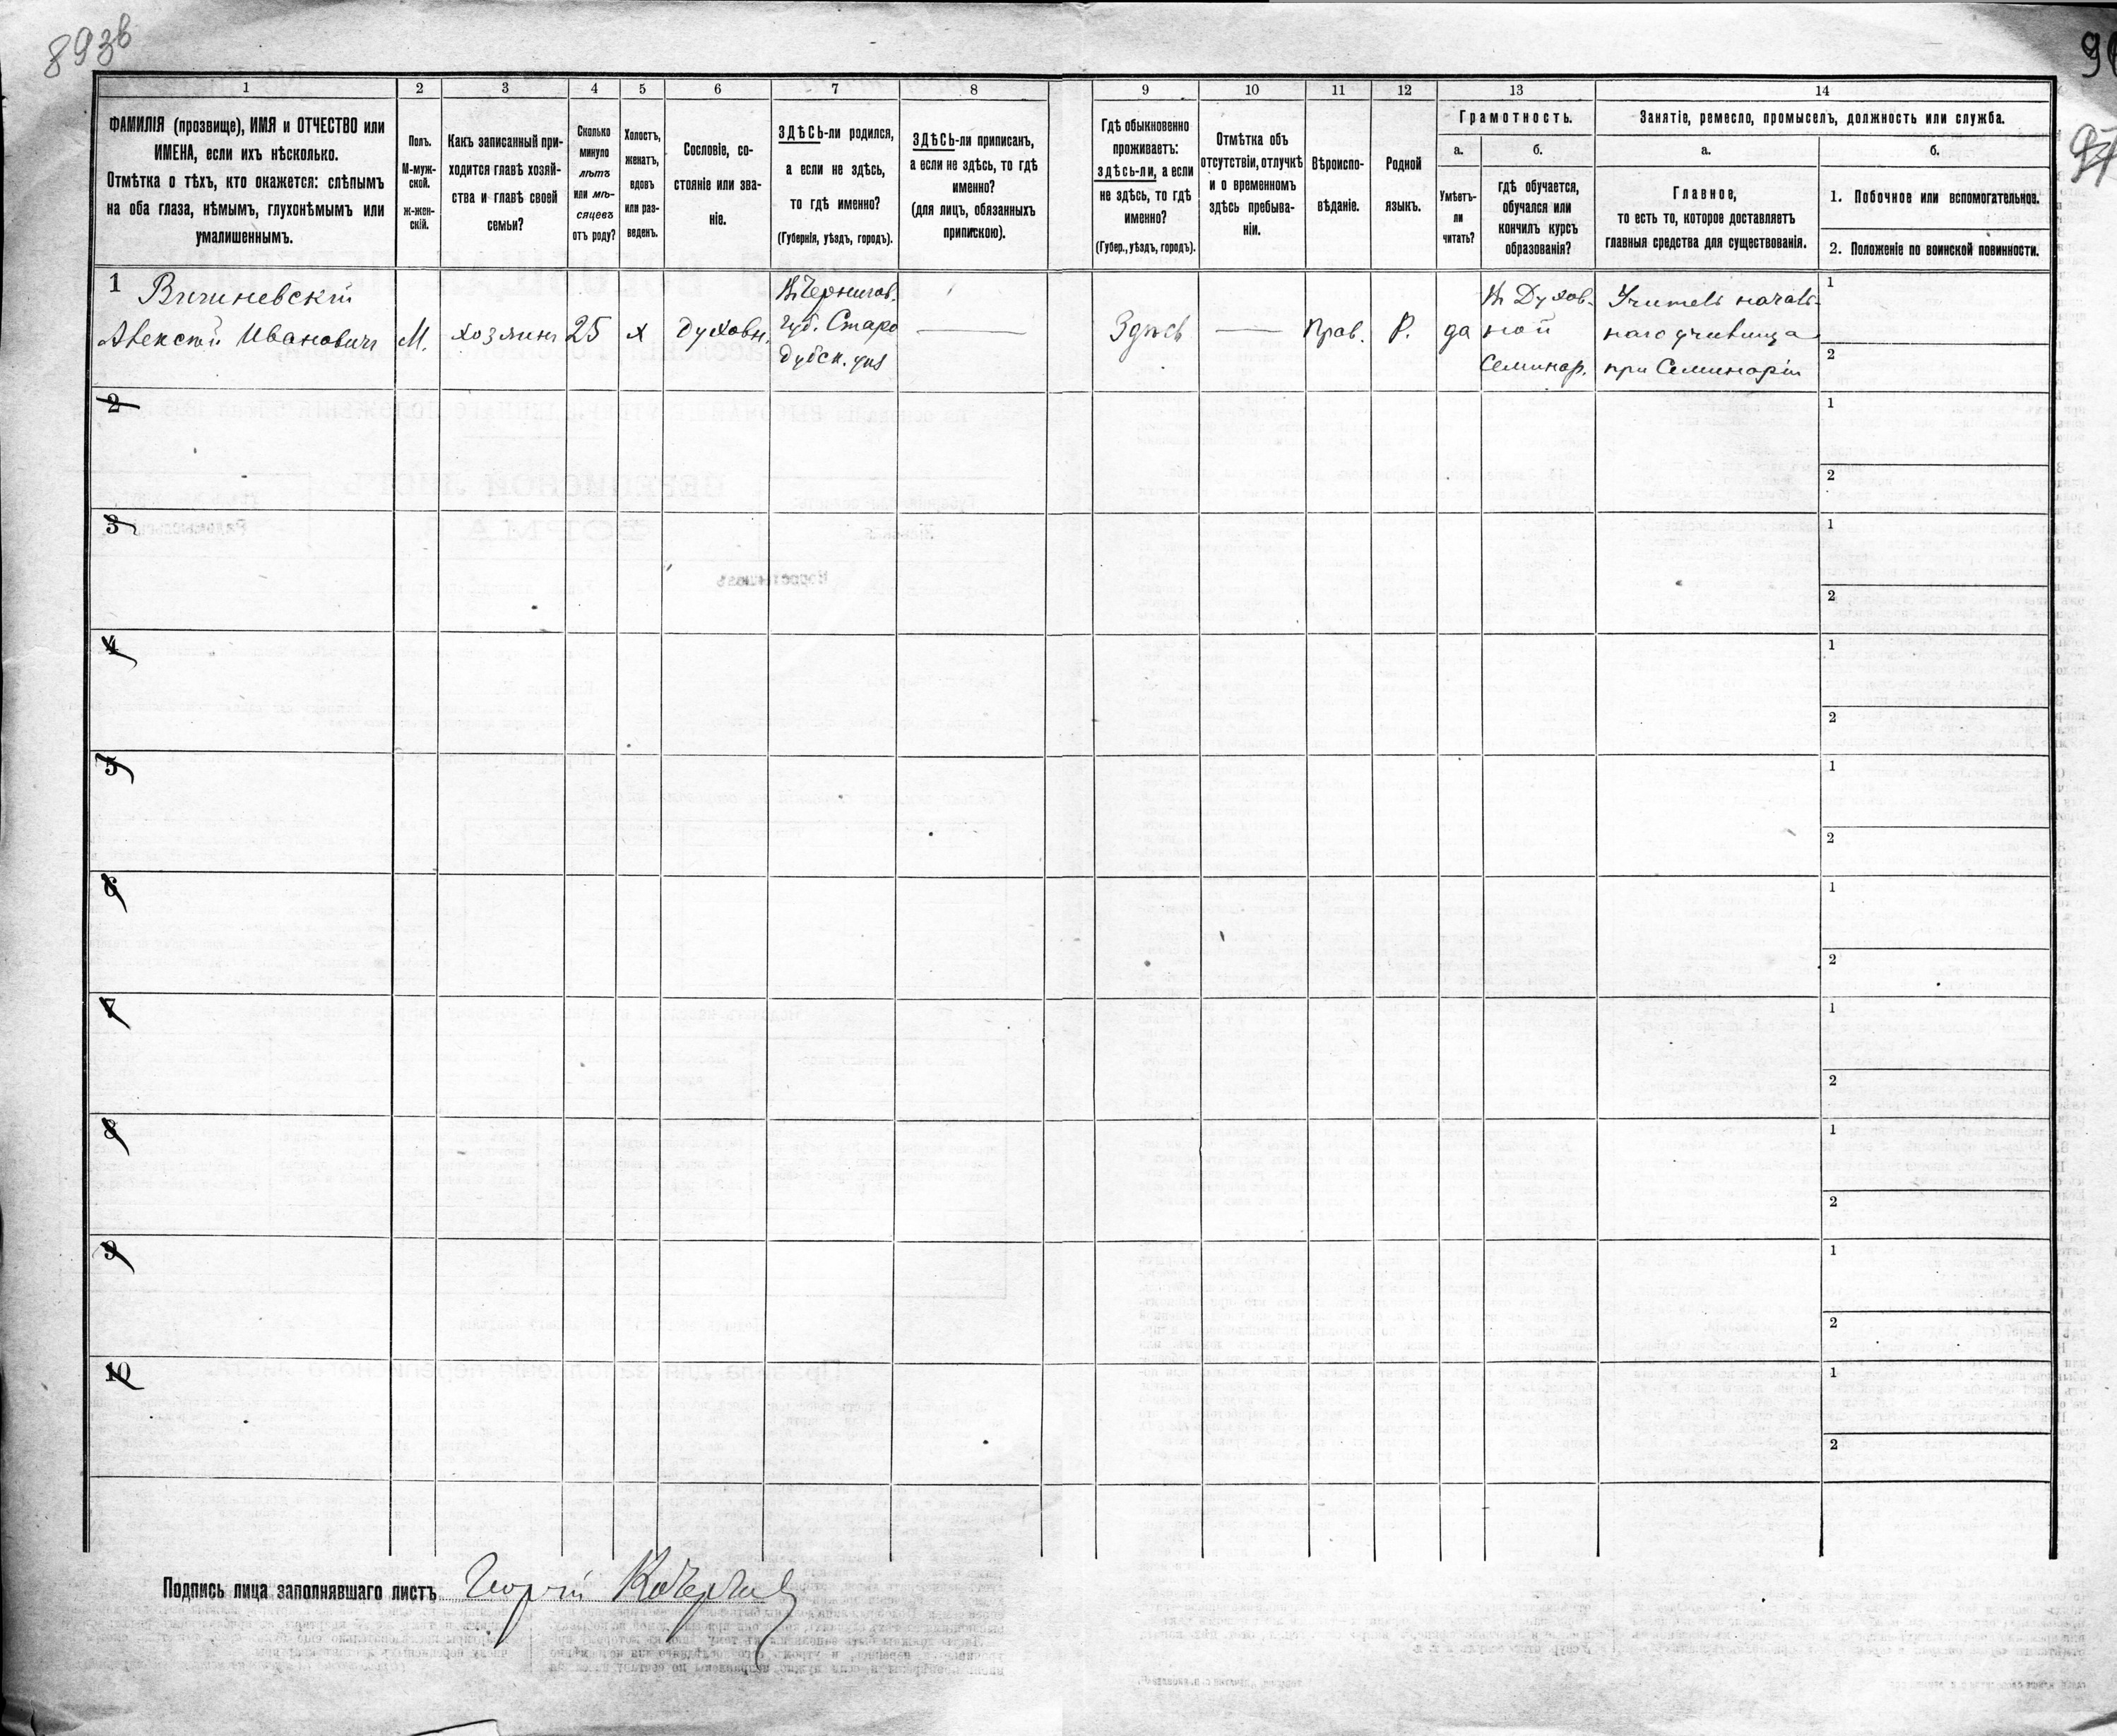 893б
1
2
3
4
5
6
7
8
9
10
11
12
13
14
ФАМИЛІЯ (прозвище), ИМЯ и ОТЧЕСТВО или
ИМЕНА, если ихъ нѣсколько.
Отмѣтка о тѣхъ, кто окажется: слѣпымъ
на оба глаза, нѣмымъ, глухонѣмымъ или
умалишеннымъ.
Полъ.
М-муж-
ской.
ж-жен-
скій.
Какъ записанный при-
ходится главѣ хозяй-
ства и главѣ своей
семьи?
Сколько
минуло
лѣтъ
или мѣ-
сяцевъ
отъ роду?
Холостъ,
женатъ,
вдовъ
или раз-
веденъ.
Сословіе, со-
стояніе или зва-
ніе.
ЗДѢСЬ-ли родился,
а если не здѣсь,
то гдѣ именно?
(Губернія, уѣздъ, городъ).
ЗДѢСЬ-ли приписанъ,
а если не здѣсь, то гдѣ
именно?
(для лицъ, обязанныхъ
припискою).
Гдѣ обыкновенно
проживаетъ:
здѣсь-ли, а если
не здѣсь, то гдѣ
именно?
(Губер., уѣздъ, городъ).
Отмѣтка объ
отсутствіи, отлучкѣ
и о временномъ
здѣсь пребыва-
ніи.
Вѣроиспо-
вѣданіе.
Родной
языкъ.
Грамотность.
а.
Умѣетъ-
ли
читать?
б.
гдѣ обучается,
обучался или
кончилъ курсъ
образованія?
Занятіе, ремесло, промыселъ, должность или служба.
а.
Главное,
то есть то, которое доставляетъ
главныя средства для существованія.
б.
1. Побочное или вспомогательное.
2. Положеніе по воинской повинности.
1 Вишневскій
Алексѣй Ивановичъ
М.
хозяинъ
25
х
Духовн.
Въ Чернигов.
губ. Старо
дубск. уѣз
Здѣсь
Прав.
Р.
да
Въ Духов-
ной
Семинар.
Учитель началь-
наго училища
при Семинаріи
1
2
2
1
2
3
1
2
4
1
2
5
1
2
6
1
2
7
1
2
8
1
2
9
1
2
10
1
2
Подпись лица заполнявшаго листъ Георгій